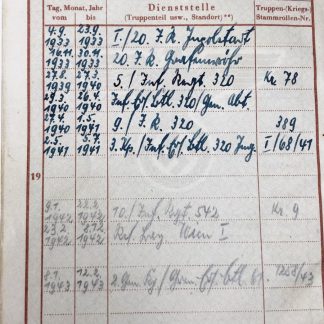 Tag, Monat, Jahr Dienststelle Truppen-(Kriegs-)
vom bis (Truppenteil usw., Standort)**) Stammrollen-Nr.
4.9. 1933 23.9. 1933 I./20. J.R. Ingolstadt
1933 30.11. 1933 20. J.R. Grafenwöhr
27.8. 1939 27.3. 1940 5./Inf. Regt. 320 Kr. 78
1940 1940 Inf. Ers. Btl. 320/Gen. Abt.
27.4. 1940 1.5. 1941 9./J.R. 320 389
2.5. 1941 5.7. 1941 3. Kp./Inf. Ers. Btl. 320 Ing. I/68/41
19
9.1. 1942 22.2. 1942 10./Inf. Regt. 542 Kr. 9
23.2. 1942 1942 Res. Laz. I
1943 12.2. 1943 2. Gen. Kp./Gren. Ers. Btl. 1258/43